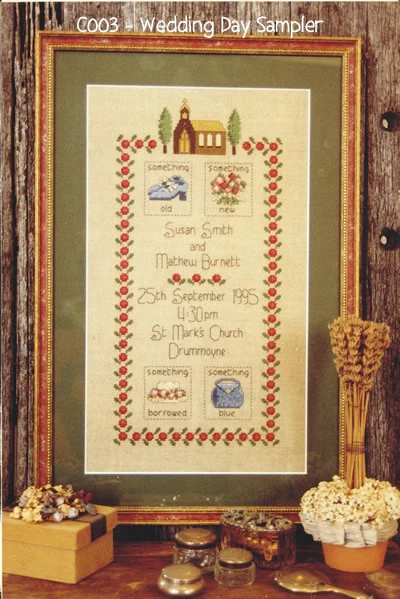 C003 - Wedding Day Sampler
something something
old new
Susan Smith
and
Mathew Burnett
25th September 1995
4:30pm
St Mark's Church
Drummoyne
something something
borrowed blue